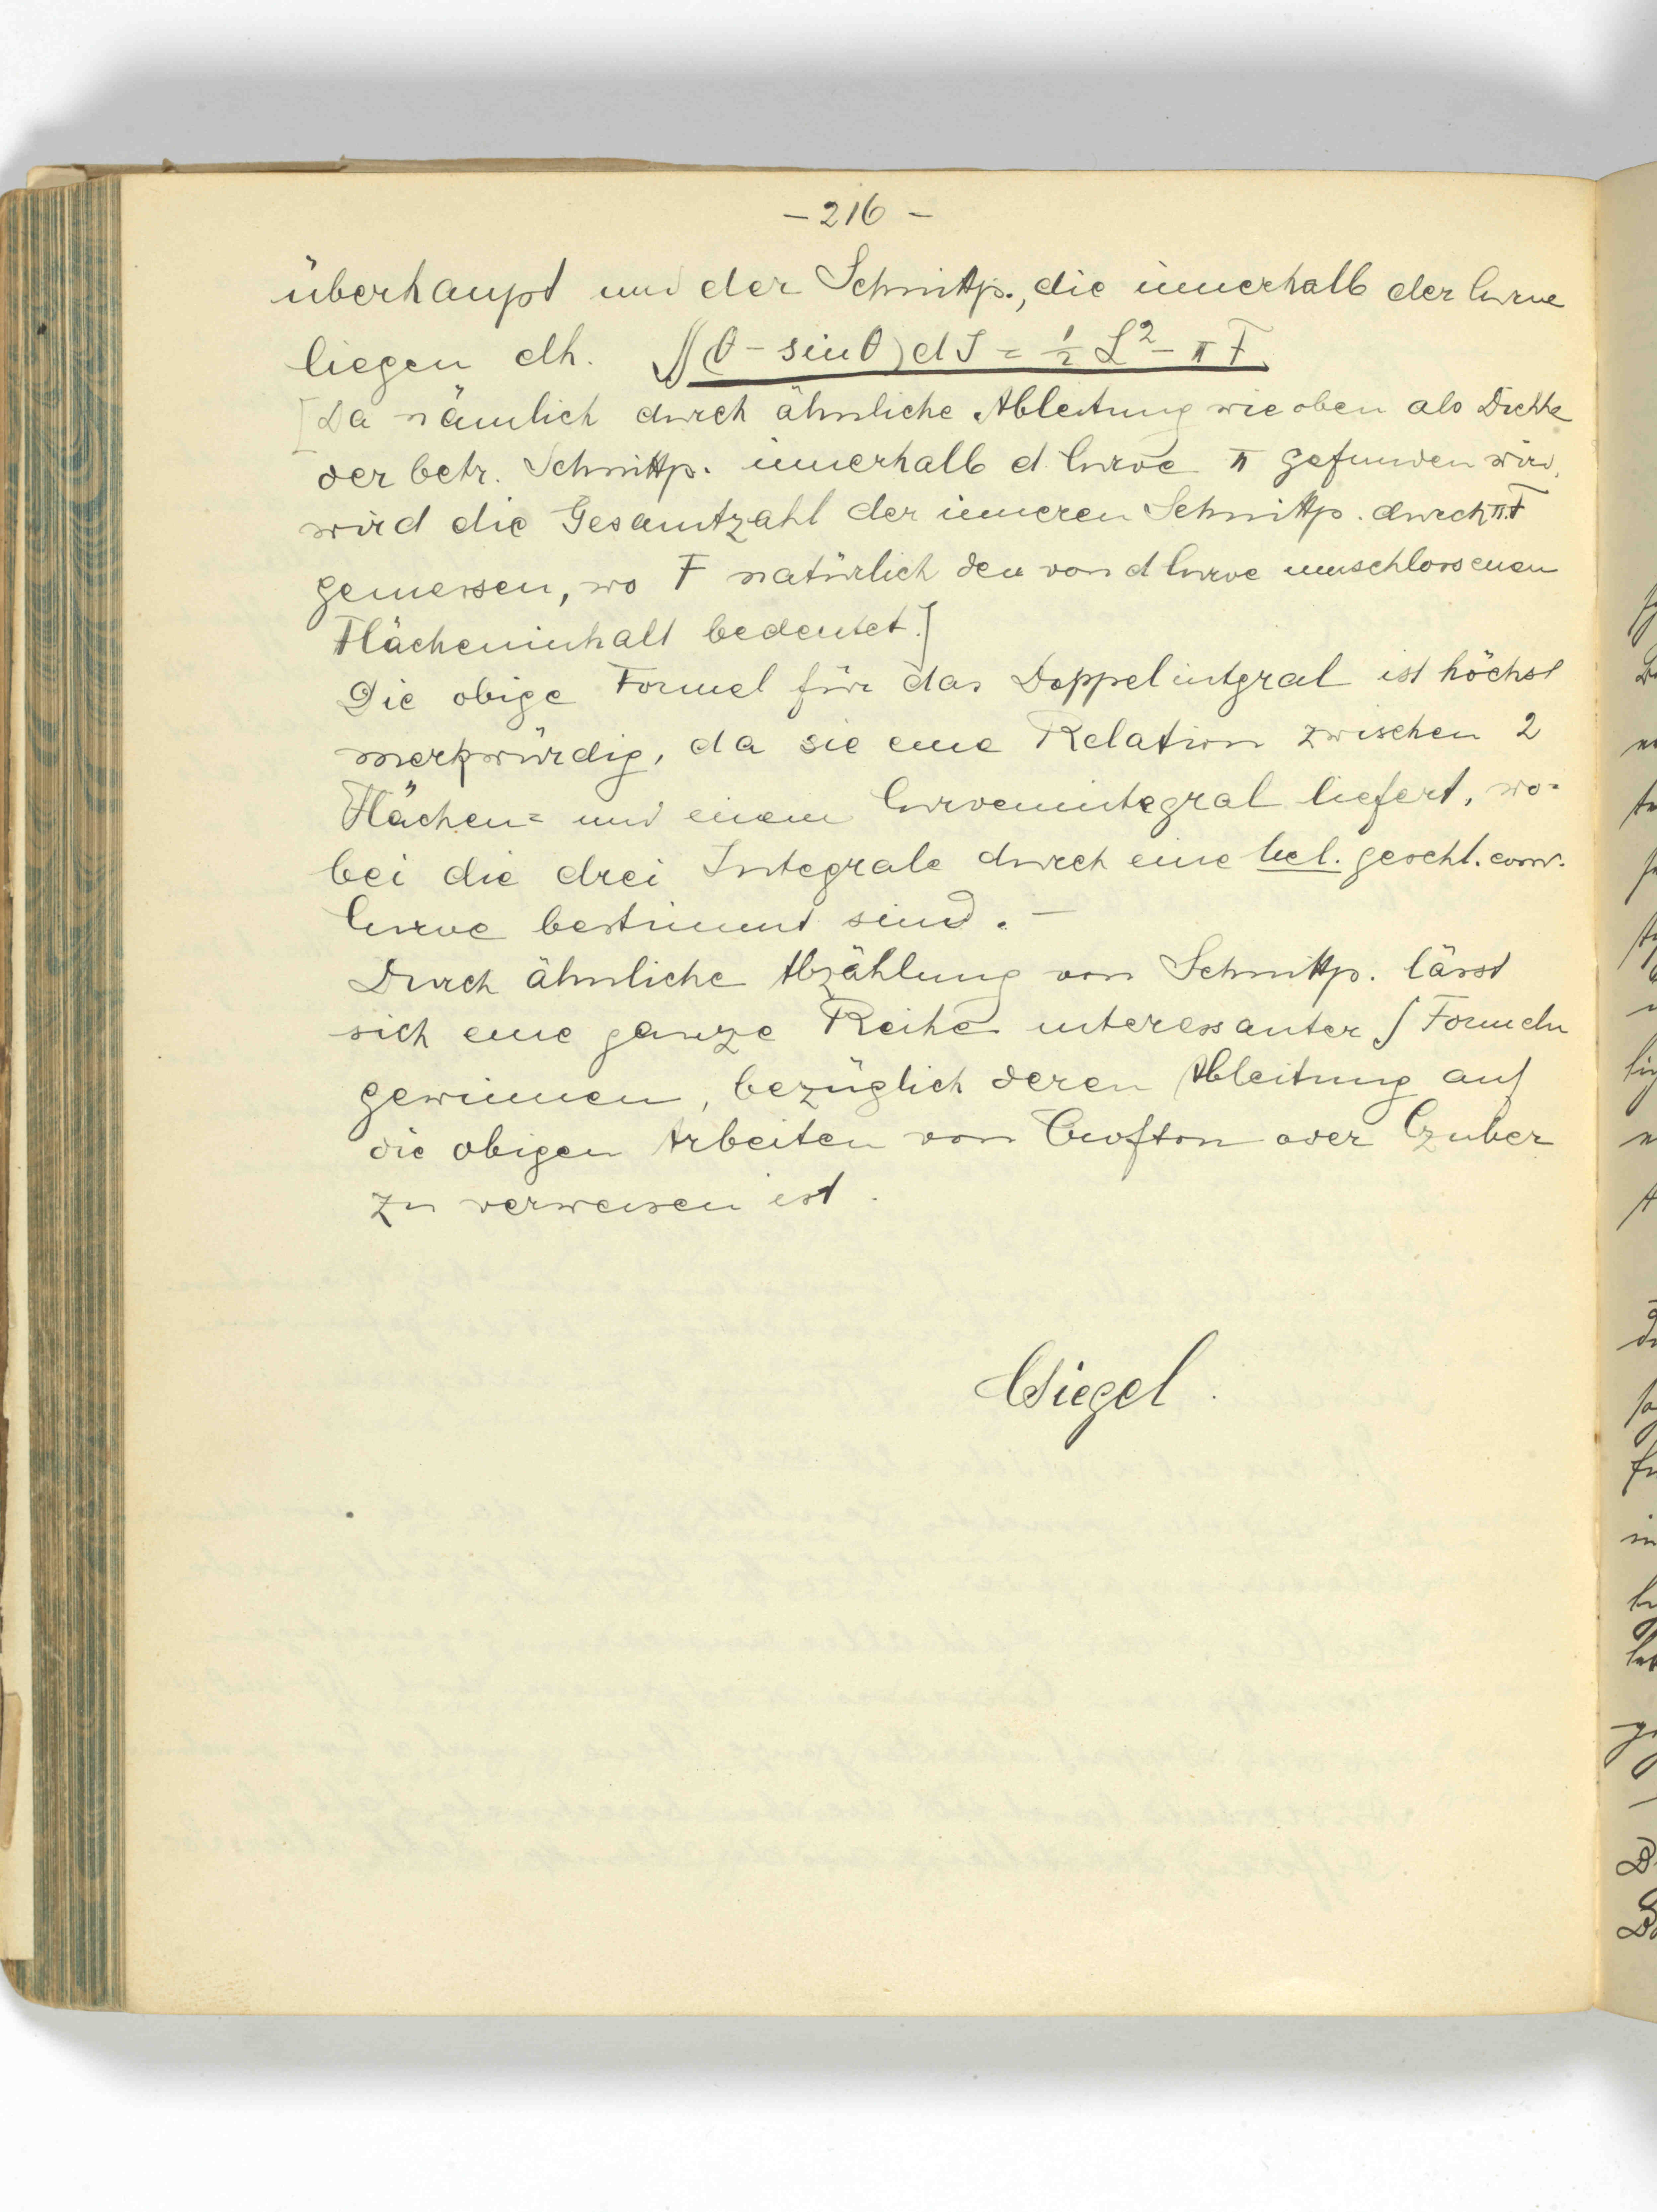 – 216 –
überhaupt und der Schnittp., die innerhalb der Curve
liegen dh. ∬(θ – sin θ) dJ = ½ L² – π F.
[Da nämlich durch ähnliche Ableitung wie oben als Dichte
der betr. Schnittp. innerhalb d. Curve π gefunden wird,
wird die Gesamtzahl der inneren Schnittp. durch π.F
gemessen, wo F natürlich den von d Curve umschlossenen
Flächeninhalt bedeutet.]
Die obige Formel für das Doppelintgral ist höchst
merkwürdig, da sie eine Relation zwischen 2
Flächen= und einem Curvenintegral liefert, wo=
bei die drei Integrale durch eine bel. geschl. conv.
Curve bestimmt sind. –
Durch ähnliche Abzählung von Schnittp. lässt
sich eine ganze Reihe interessanter ∫ Formeln
gewinnen, bezüglich deren Ableitung auf
die obigen Arbeiten von Crofton oder Czuber
zu verweisen ist.
Wiegel.